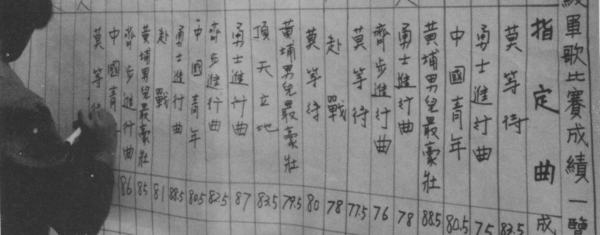 軍歌比賽成績一覽
指定曲 成
莫等待 83.5
勇士進行曲 75
中國青年 80.5
黃埔男兒最豪壯 88.5
勇士進行曲 78
齊步進行曲 76
莫等待 77.5
赴戰 78
莫等待 80
黃埔男兒最豪壯 79.5
頂天立地 83.5
勇士進行曲 87
齊步進行曲 82.5
中國青年 80.5
勇士進行曲 88.5
赴戰 81
黃埔男兒最豪壯 85
齊步進行曲 86
中國青
莫等